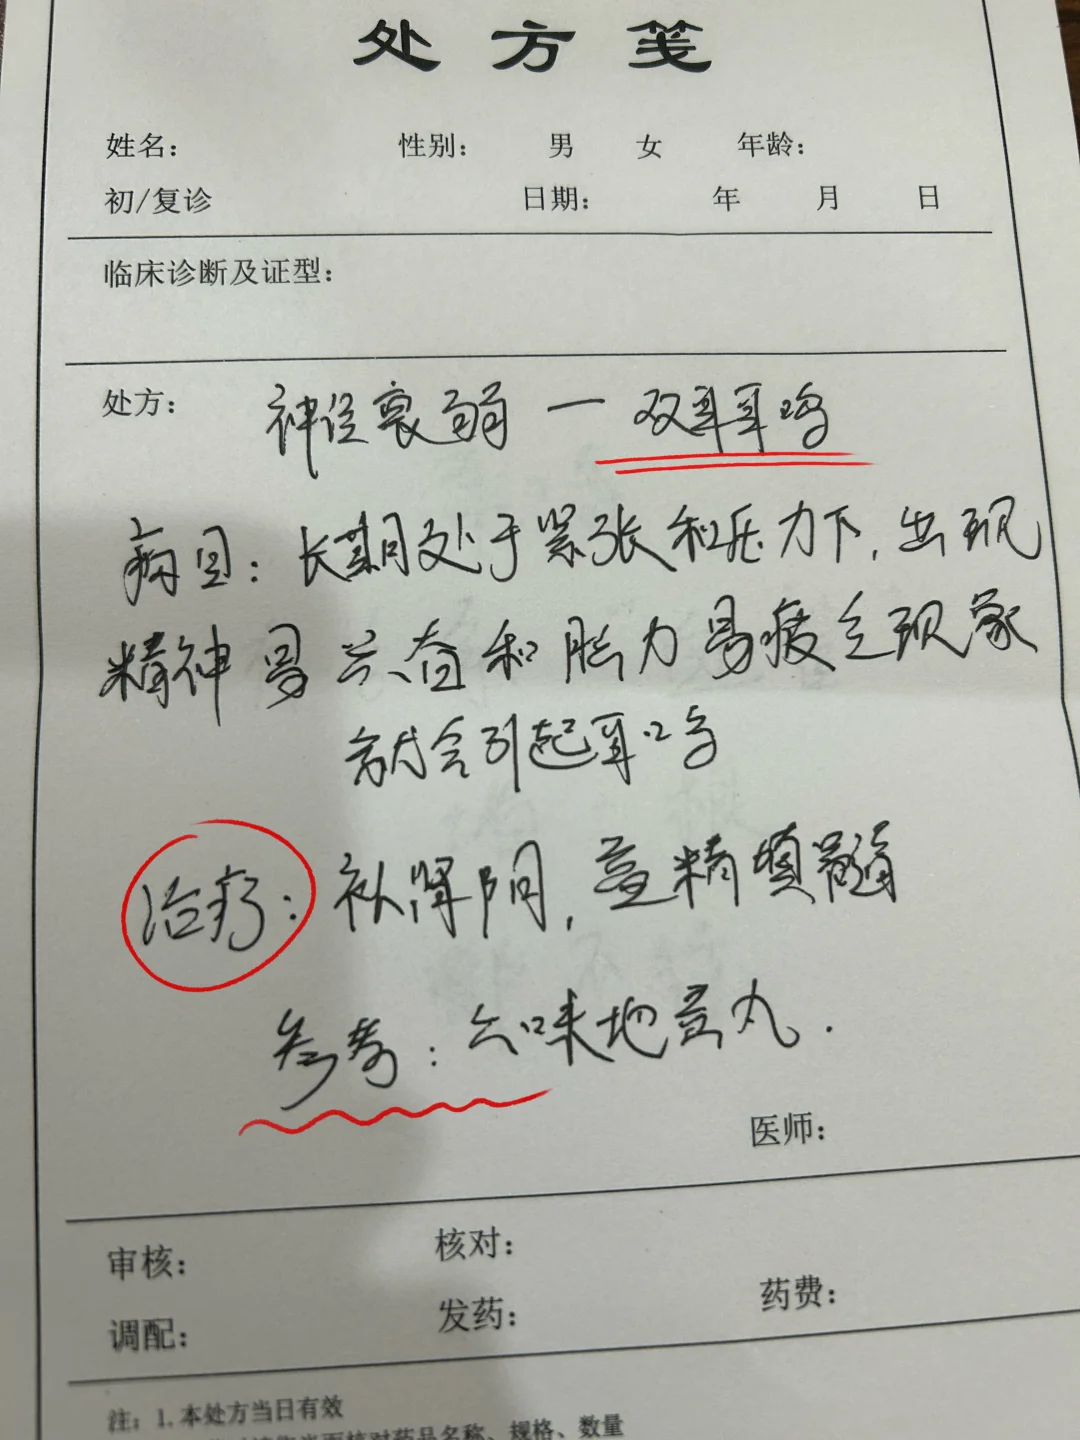 处方笺
姓名： 性别： 男 女 年龄：
初/复诊 日期： 年 月 日
临床诊断及证型：
处方： 神经衰弱 — 双耳耳鸣
病因：长期处于紧张和压力下，出现
精神易兴奋和脑力易疲乏现象
就会引起耳鸣
治疗：补肾阴，益精填髓
参考：六味地黄丸.
医师：
审核： 核对：
调配： 发药： 药费：
注：1.本处方当日有效
核对药品名称、规格、数量